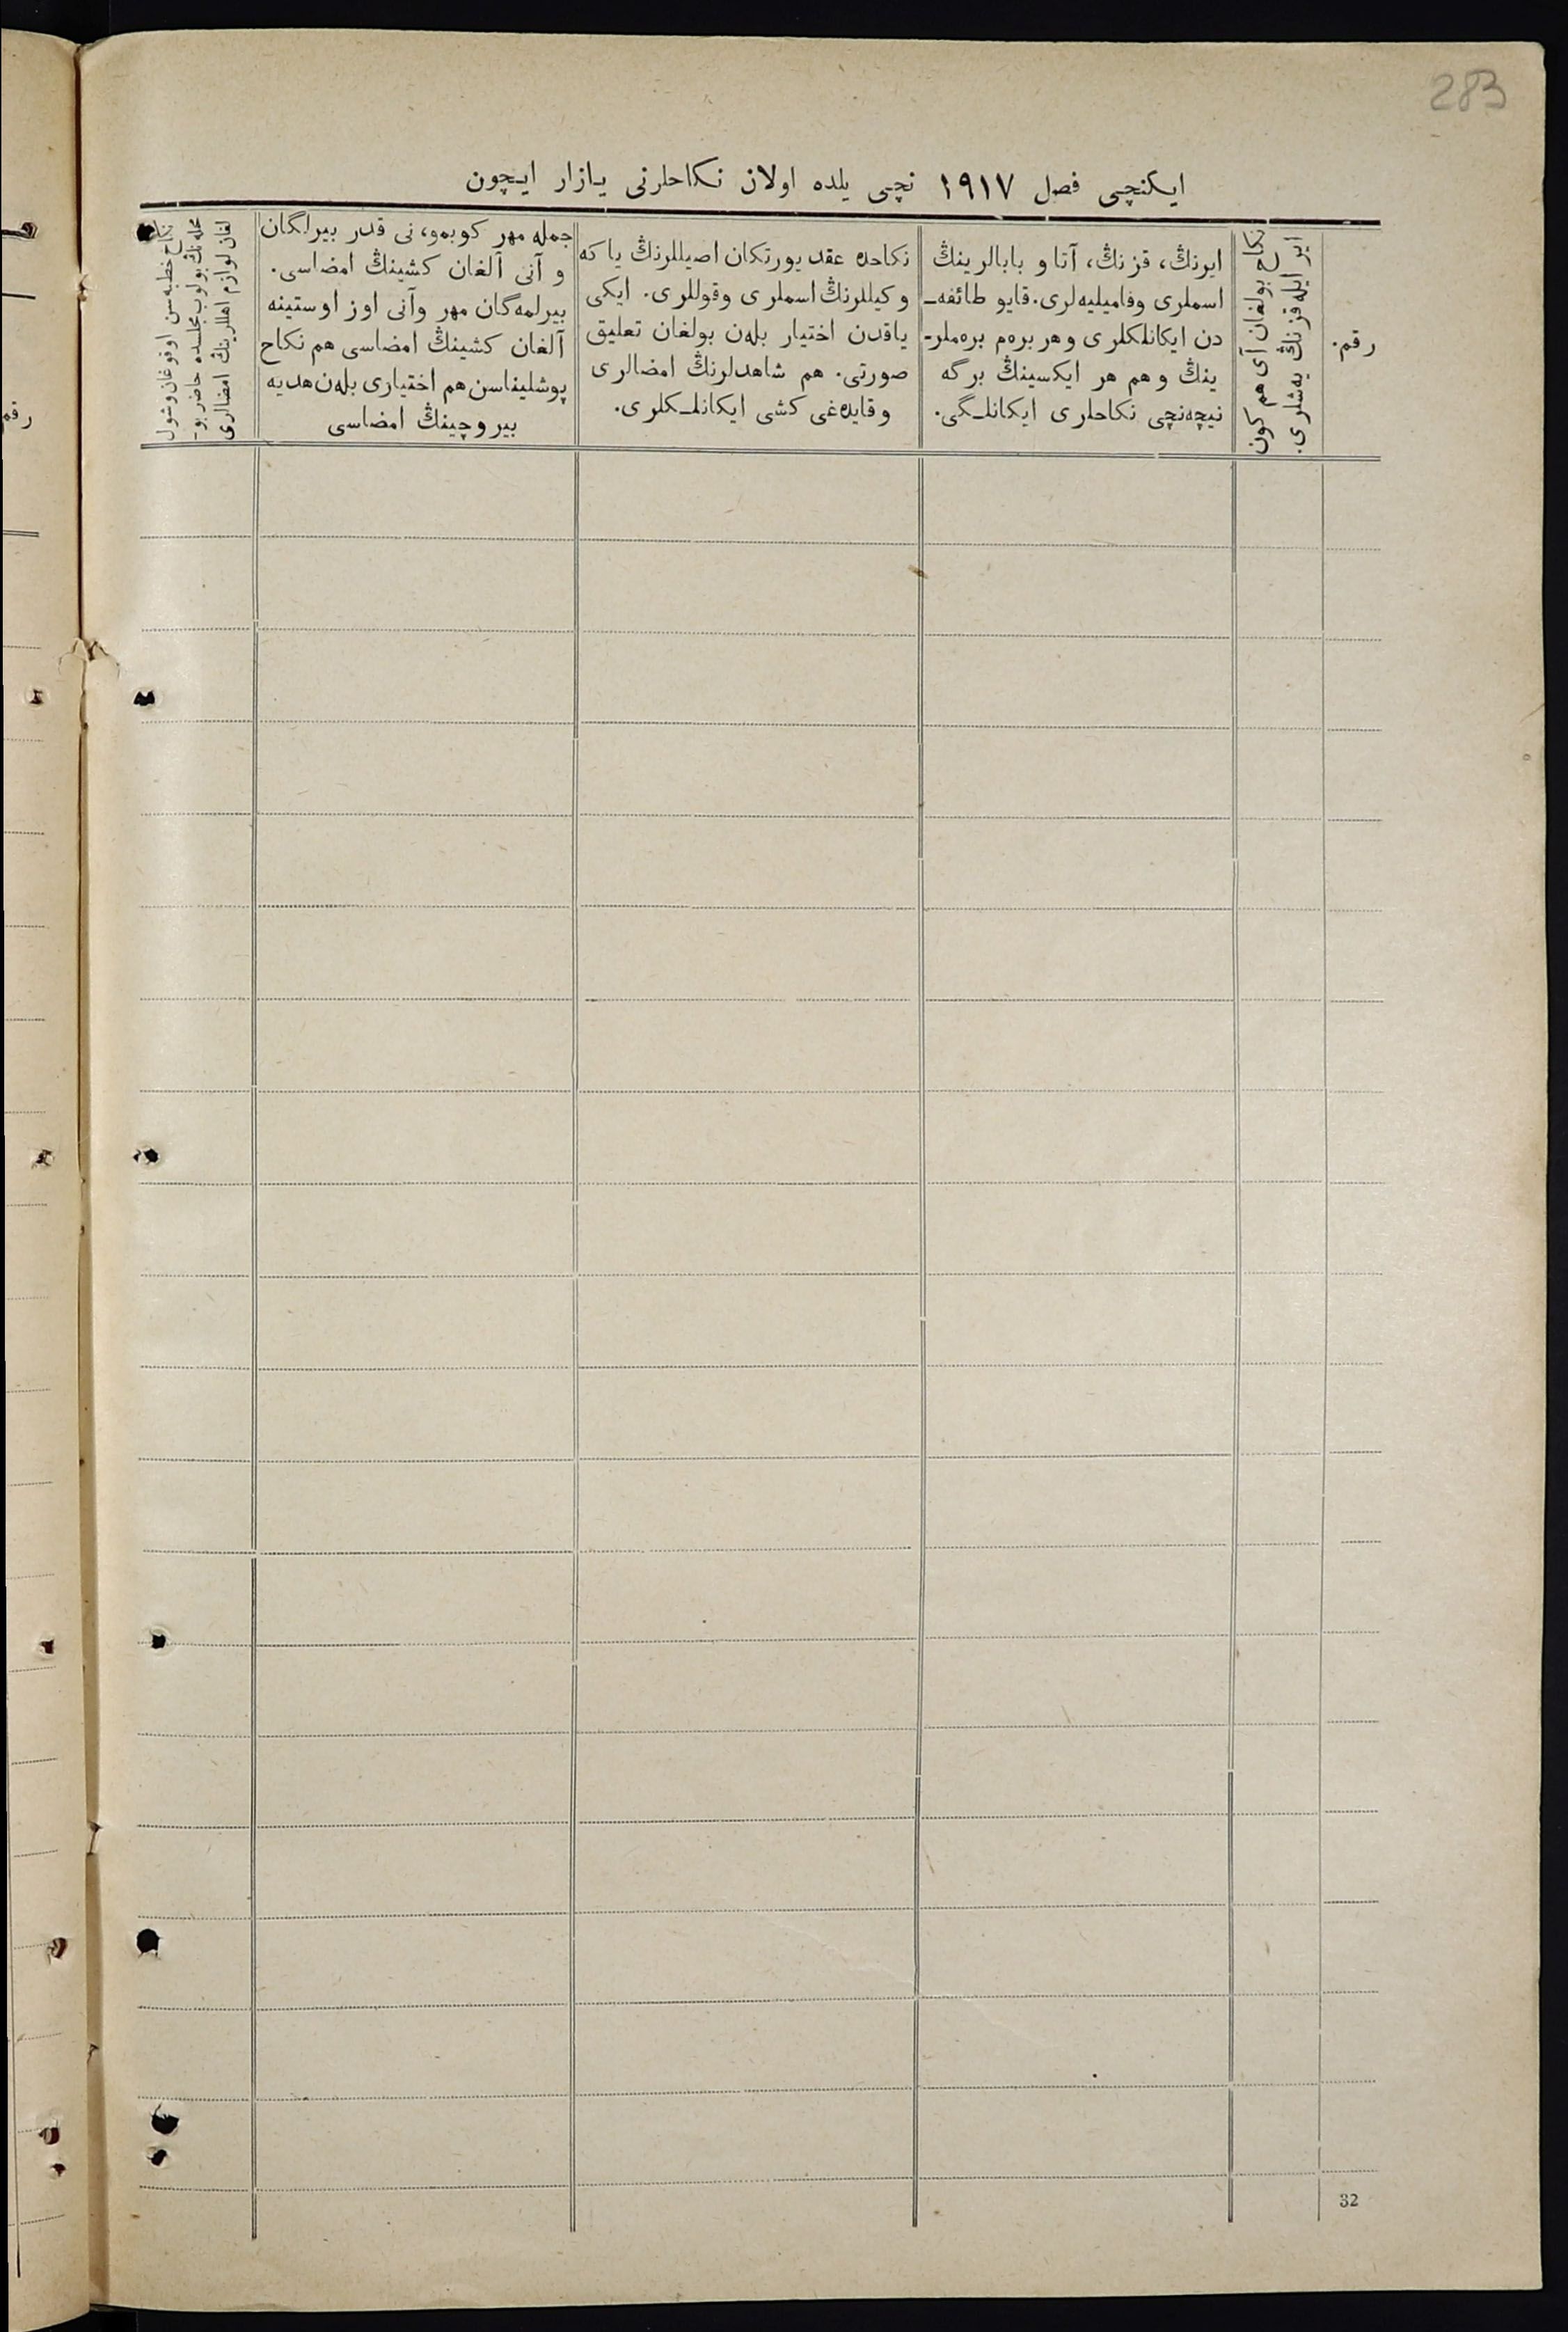 283
ایکنچی فصل ١٩١٧ نچی یلده اولان نکاحلرنی یازار ایچون
رقم.
نکاح بولغان آی هم کون
ایر ایله قزنڭ یه‌شلری.
ایرنڭ، قزنڭ، آتا و بابالرینڭ
اسملری وفامیلیه‌لری. قایو طائفه‌ـ
دن ایکانلکلری و هر بره‌م بره‌ملرـ
ینڭ و هم هر ایکسینڭ برگه
نیچه‌نچی نکاحلری ایکانلـگی.
نکاحده عقد یورتکان اصیللرنڭ یا که
وکیللرنڭ اسملری وقوللری. ایکی
یاقدن اختیار بله‌ن بولغان تعلیق
صورتی. هم شاهدلرنڭ امضالری
وقایده‌غی کشی ایکانلـکلری.
جمله مهر کوبمو، نی قدر بیرلگان
و آنی آلغان کشینڭ امضاسی.
بیرلمه‌گان مهر وآنی اوز اوستینه
آلغان کشینڭ امضاسی هم نکاح
پوشلیناسن هم اختیاری بله‌ن هدیه
بیروچینڭ امضاسی
نکاح خطبه‌سن اوقوغان وشول
محله‌نڭ بولوب مجلسده حاضر بوـ
لغان لوازم اهللرینڭ امضالری
32
رقم